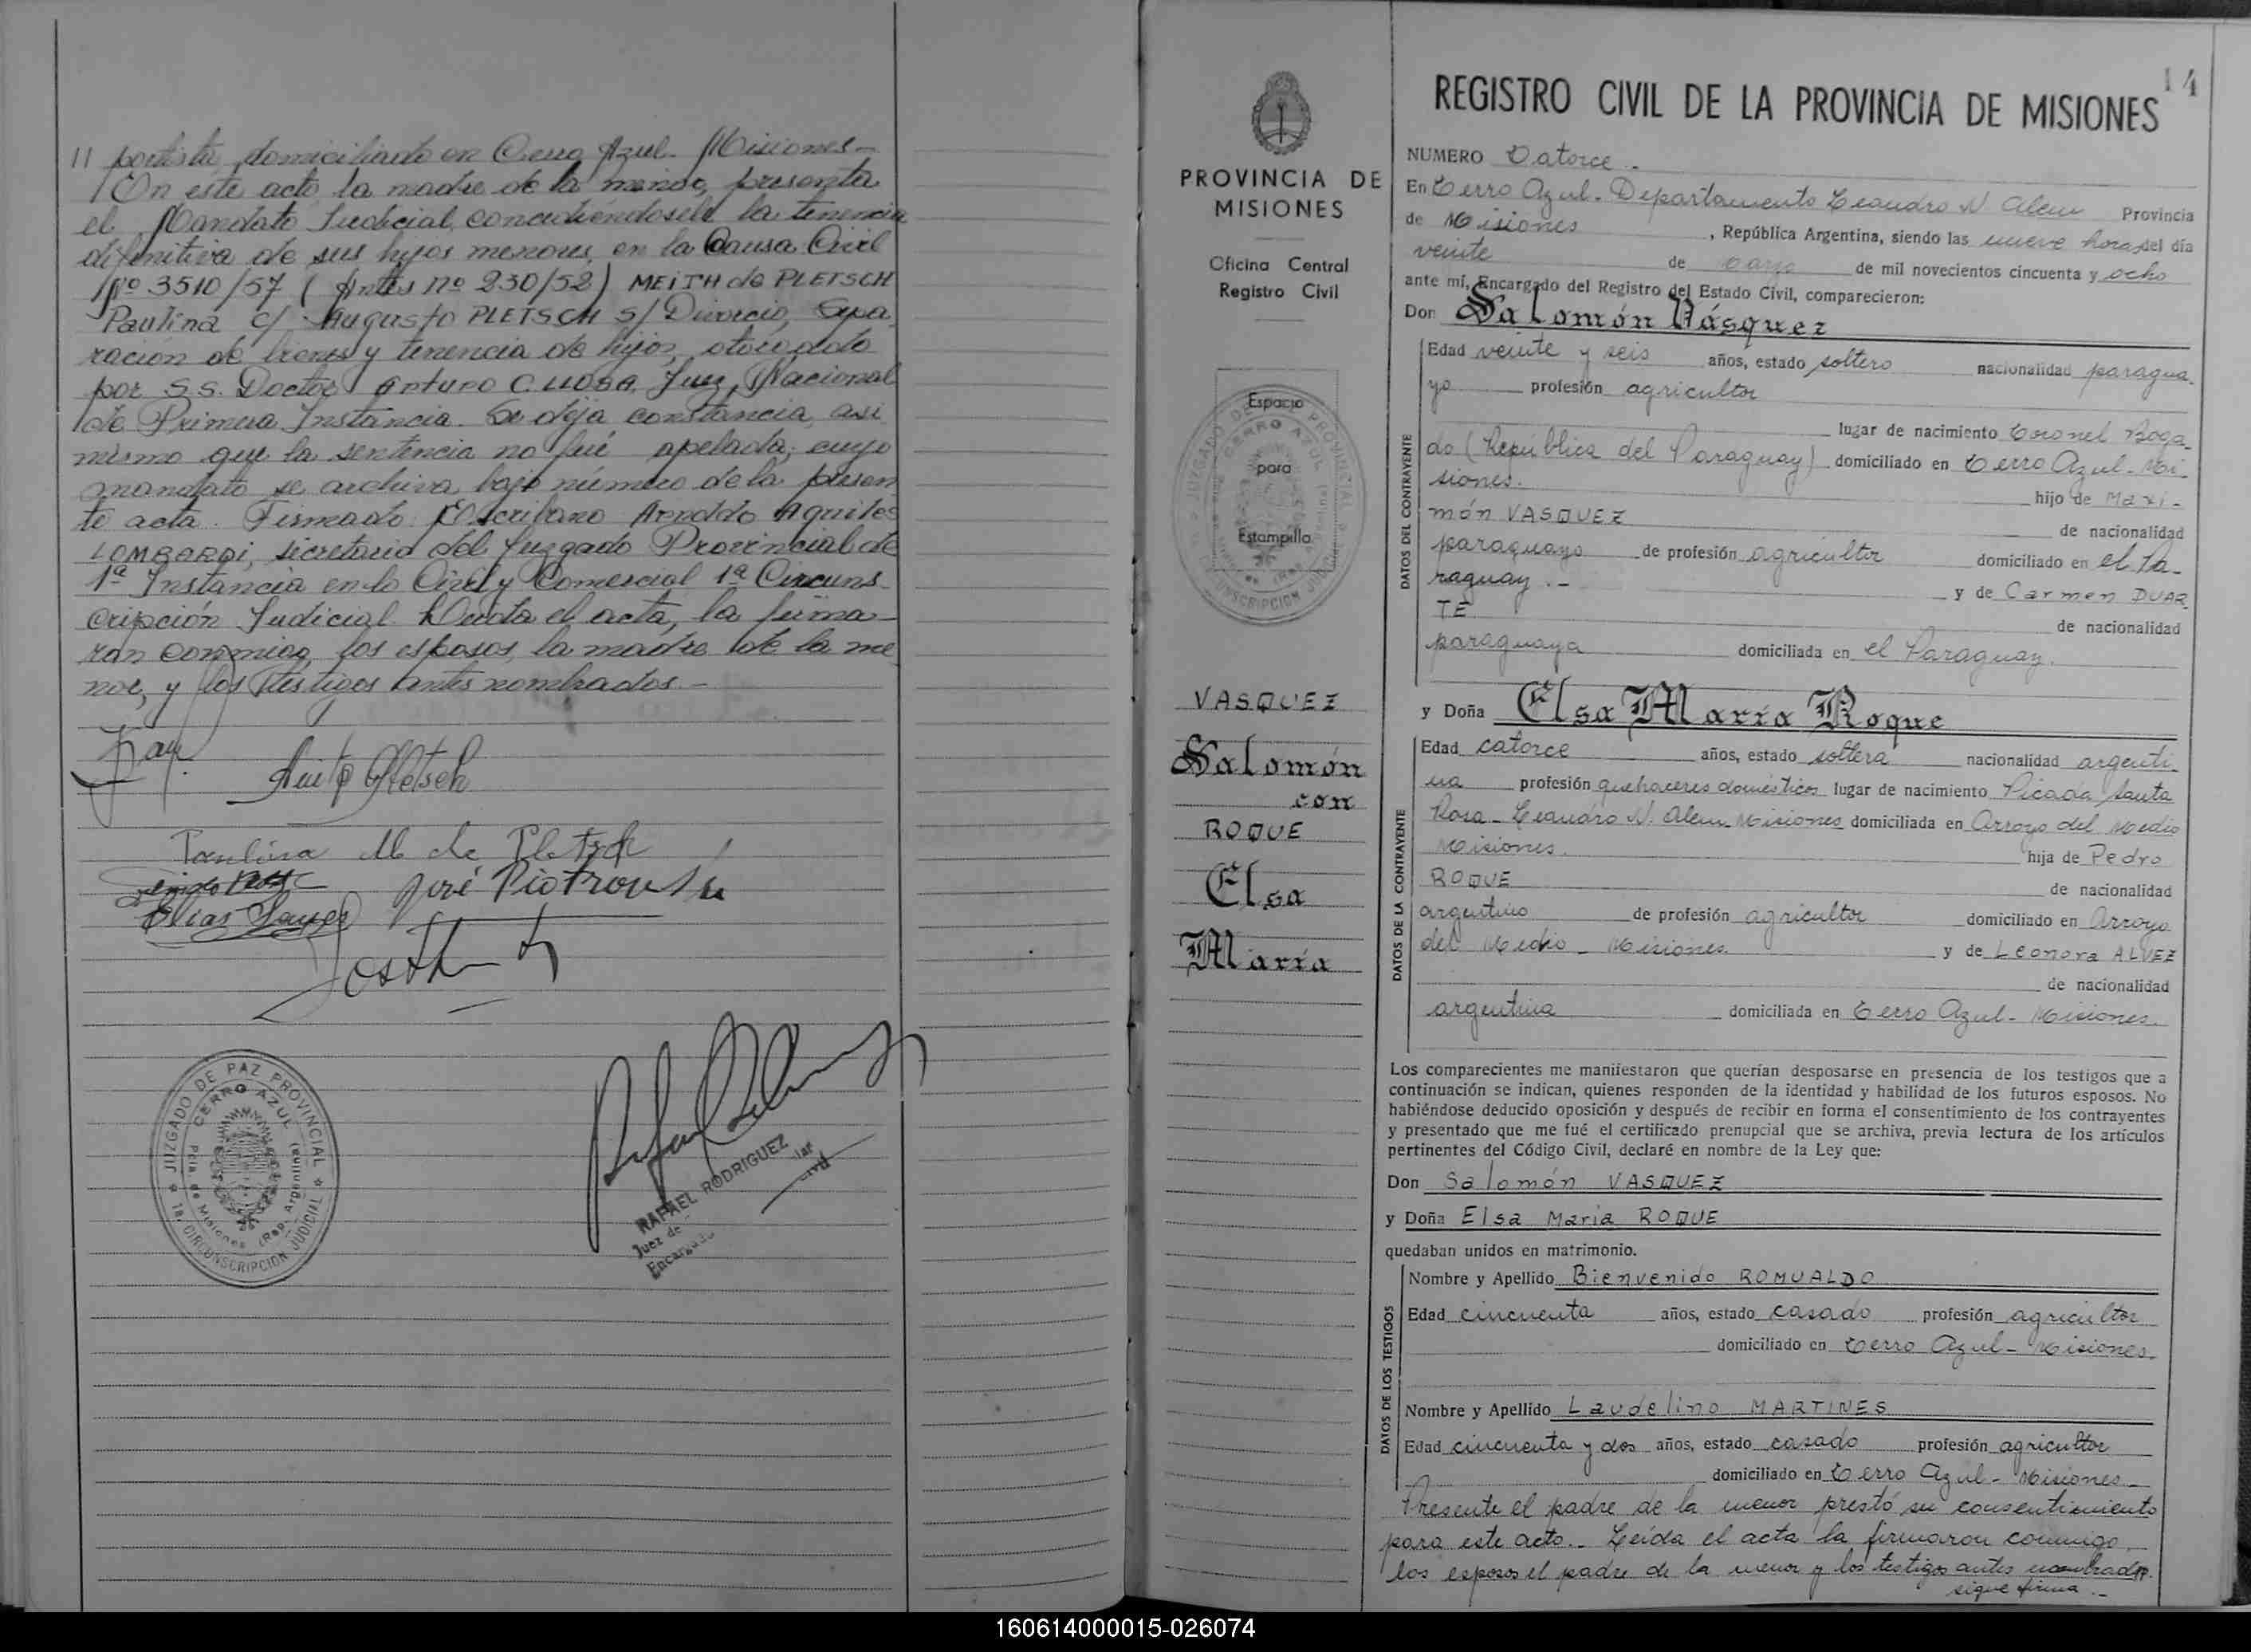 11 portista, domiciliado en Cerro Azul. Misiones.-
En este acto la madre de la menor, presenta
el Mandato Judicial, concediéndosele la tenencia
difinitiva de sus hijos menores, en la Causa Civil
Nº 3510/57 ( Antes nº 230/52) MEITH de PLETSCH
Paulina c/ Augusto PLETSCH s/ Divorcio, Sepa-
ración de bienes y tenencia de hijos, otorgado
por S.S. Doctor Arturo C. LLOSA, Juez Nacional
de Primera Instancia. Se deja constancia, asi
mismo que la sentencia no fué apelada; cuyo
mandato se archiva bajo número de la presen
te acta. Firmado: Escribano Arnoldo Aquiles
LOMBARDI, secretario del Juzgado Provincial de
1ª Instancia en lo Civil y Comercial 1ª Circuns-
cripción Judicial. Leída el acta, la firma-
ron conmigo, los esposos, la madre de la me
nor, y los testigos antes nombrados.-
Paulina M de Pletsch
José
Elias
JUZGADO DE PAZ PROVINCIAL
CERRO AZUL
Pcia. de Misiones (Rep. Argentina)
1a. CIRCUNSCRIPCION JUDICIAL
RAFAEL RODRIGUEZ
Juez de
Encargado
PROVINCIA DE
MISIONES
Oficina Central
Registro Civil
Espacio
para
Estampilla
JUZGADO DE PAZ PROVINCIAL
CERRO AZUL
CIRCUNSCRIPCION JUDICIAL
VASQUEZ
Salomón
con
ROQUE
Elsa
María
14
REGISTRO CIVIL DE LA PROVINCIA DE MISIONES
NUMERO Catorce.-
En Cerro Azul - Departamento Leandro N. Alem Provincia
de Misiones , República Argentina, siendo las nueve horas del día
veinte de de mil novecientos cincuenta y ocho
ante mí, Encargado del Registro del Estado Civil, comparecieron:
Don Salomón Vásquez
DATOS DEL CONTRAYENTE
Edad veinte y seis años, estado soltero nacionalidad paragua-
yo profesión agricultor
lugar de nacimiento Coronel Boga-
do (República del Paraguay) domiciliado en Cerro Azul - Mi-
siones. hijo de Maxi-
món VASQUEZ de nacionalidad
paraguayo de profesión agricultor domiciliado en el Pa-
raguay.- y de Carmen DUAR
TE de nacionalidad
paraguaya domiciliada en el Paraguay.
y Doña Elsa María Roque
DATOS DE LA CONTRAYENTE
Edad catorce años, estado soltera nacionalidad argenti-
na profesión quehaceres domésticos lugar de nacimiento Picada Santa
Rosa - Leandro N. Alem Misiones domiciliada en Arroyo del Medio
Misiones. hija de Pedro
ROQUE de nacionalidad
argentino de profesión agricultor domiciliado en Arroyo
del Medio - Misiones. y de Leonora ALVEZ
de nacionalidad
argentina domiciliada en Cerro Azul - Misiones.
Los comparecientes me manifestaron que querían desposarse en presencia de los testigos que a
continuación se indican, quienes responden de la identidad y habilidad de los futuros esposos. No
habiéndose deducido oposición y después de recibir en forma el consentimiento de los contrayentes
y presentado que me fué el certificado prenupcial que se archiva, previa lectura de los artículos
pertinentes del Código Civil, declaré en nombre de la Ley que:
Don Salomón VASQUEZ
y Doña Elsa María ROQUE
quedaban unidos en matrimonio.
DATOS DE LOS TESTIGOS
Nombre y Apellido Bienvenido ROMUALDO
Edad cincuenta años, estado casado profesión agricultor
domiciliado en Cerro Azul - Misiones.
Nombre y Apellido Laudelino MARTINES
Edad cincuenta y dos años, estado casado profesión agricultor
domiciliado en Cerro Azul - Misiones
Presente el padre de la menor prestó su consentimiento
para este acto.- Leída el acta la firmaron conmigo,
los esposos el padre de la menor y los testigos antes nombrados.
sigue firma.-
160614000015-026074